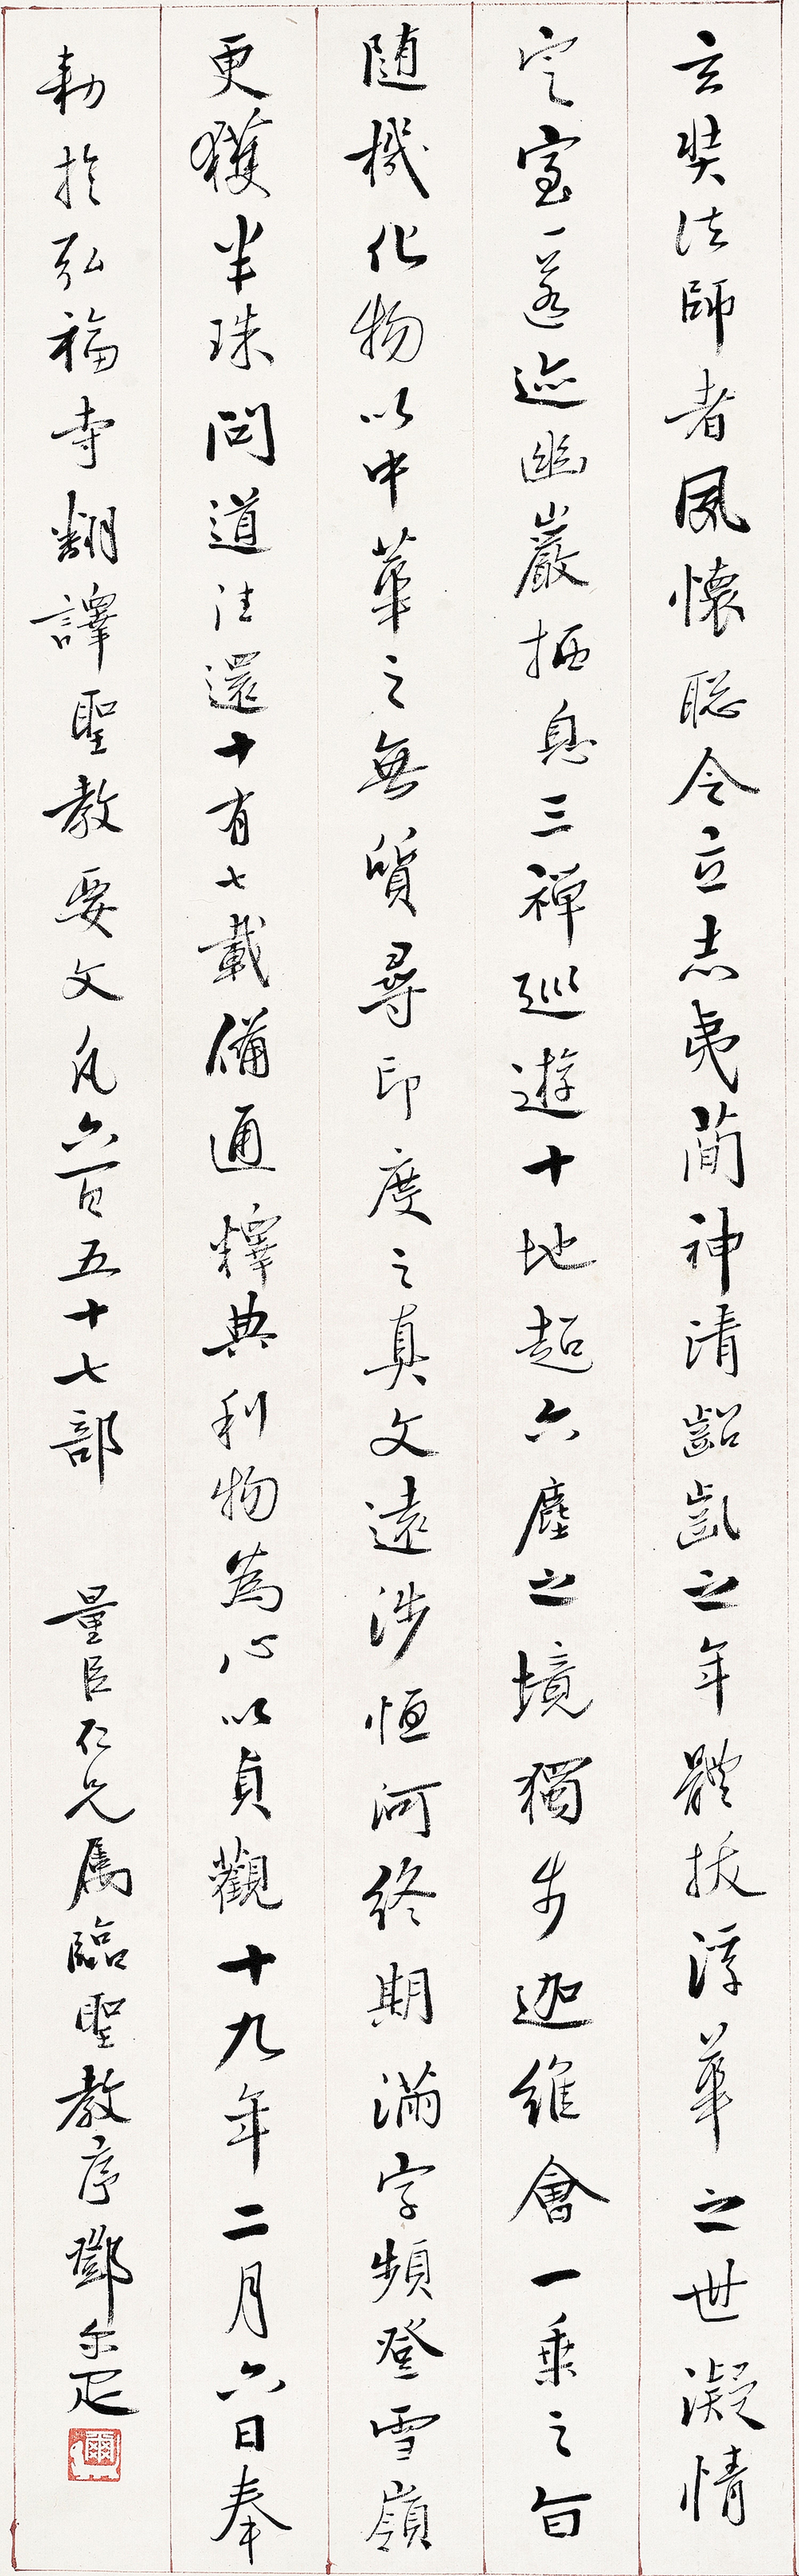 玄奘法師者夙懷聡令立志夷簡神清齠齔之年體拔浮華之世凝情
定室匿迹幽巖栖息三禪巡遊十地超六塵之境獨步迦維會一乗之旨
随機化物以中華之無質尋印度之真文遠涉恒河終期滿字頻登雪嶺
更獲半珠問道法還十有七載備通釋典利物為心以貞觀十九年二月六日奉
勅於弘福寺翻譯聖教要文凡六百五十七部 量臣仁兄属臨聖教序鄧尔疋
爾